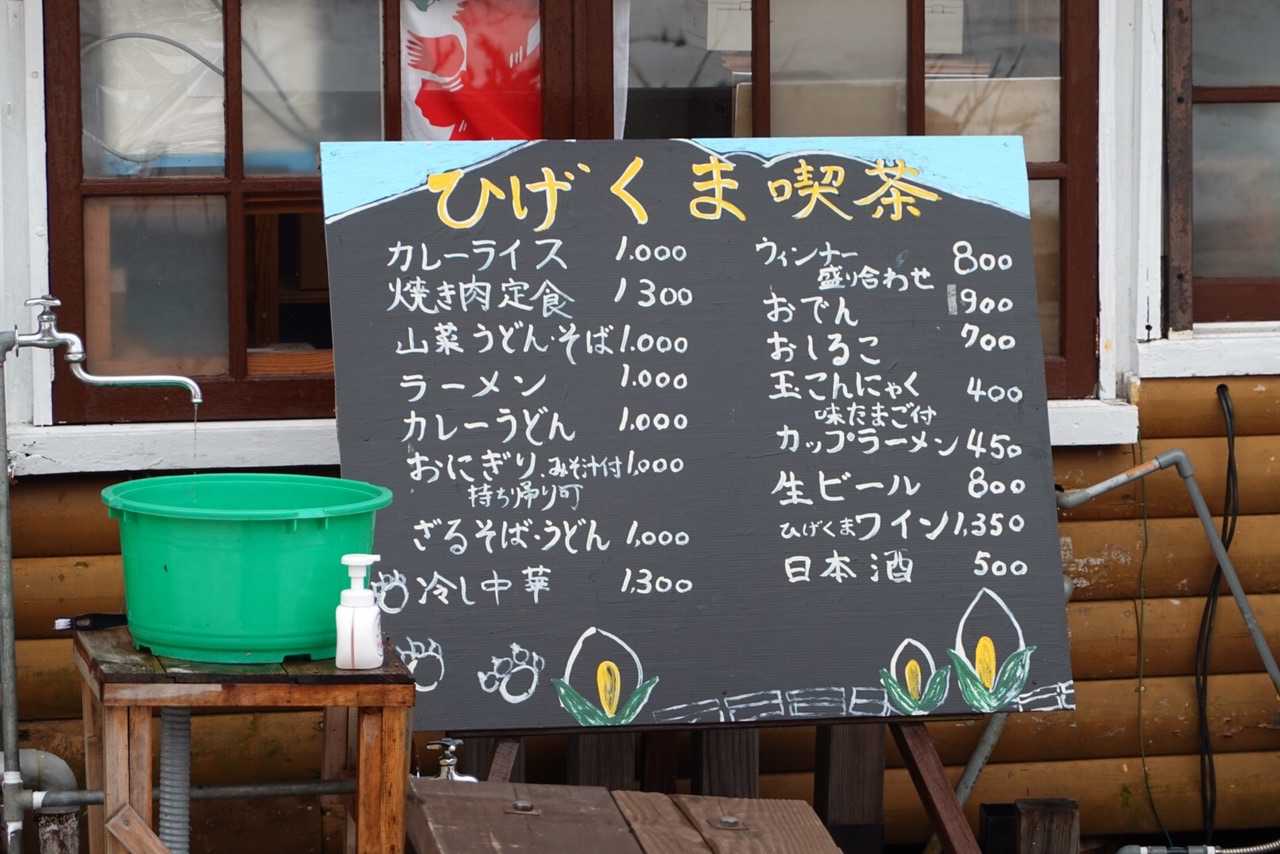 ひげくま喫茶
カレーライス 1.000
焼き肉定食 1300
山菜うどん・そば 1.000
ラーメン 1.000
カレーうどん 1.000
おにぎり.みそ汁付 1,000
持ち帰り可
ざるそば・うどん 1,000
冷し中華 1,300
ウィンナー 800
盛り合わせ
おでん 900
おしるこ 700
玉こんにゃく 400
味たまご付
カップラーメン 450
生ビール 800
ひげくまワイン 1,350
日本酒 500